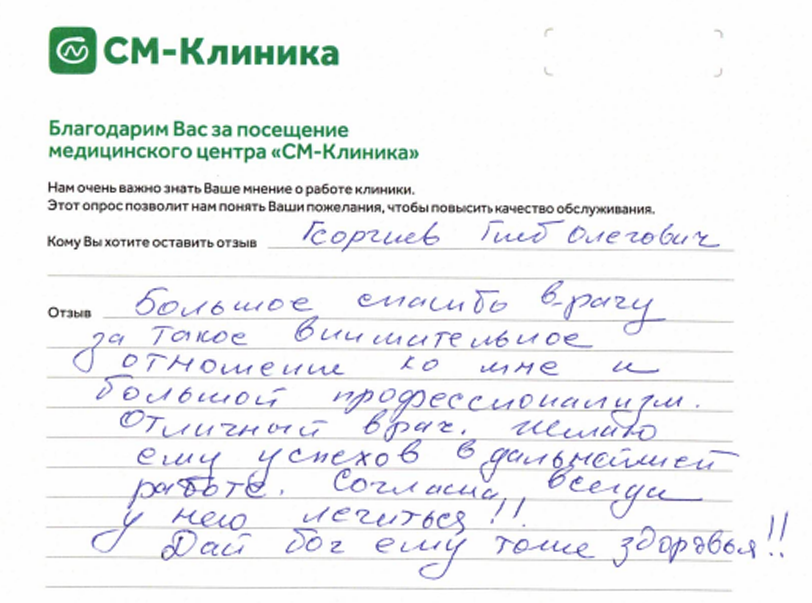 СМ-Клиника
Благодарим Вас за посещение
медицинского центра «СМ-Клиника»
Нам очень важно знать Ваше мнение о работе клиники.
Этот опрос позволит нам понять Ваши пожелания, чтобы повысить качество обслуживания.
Кому Вы хотите оставить отзыв Георгиев Глеб Олегович
Отзыв Большое спасибо врачу
за такое внимательное
отношение ко мне и
большой профессионализм.
Отличный врач. Желаю
ему успехов в дальнейшей
работе. Согласна всегда
у него лечиться!!
Дай бог ему тоже здоровья!!